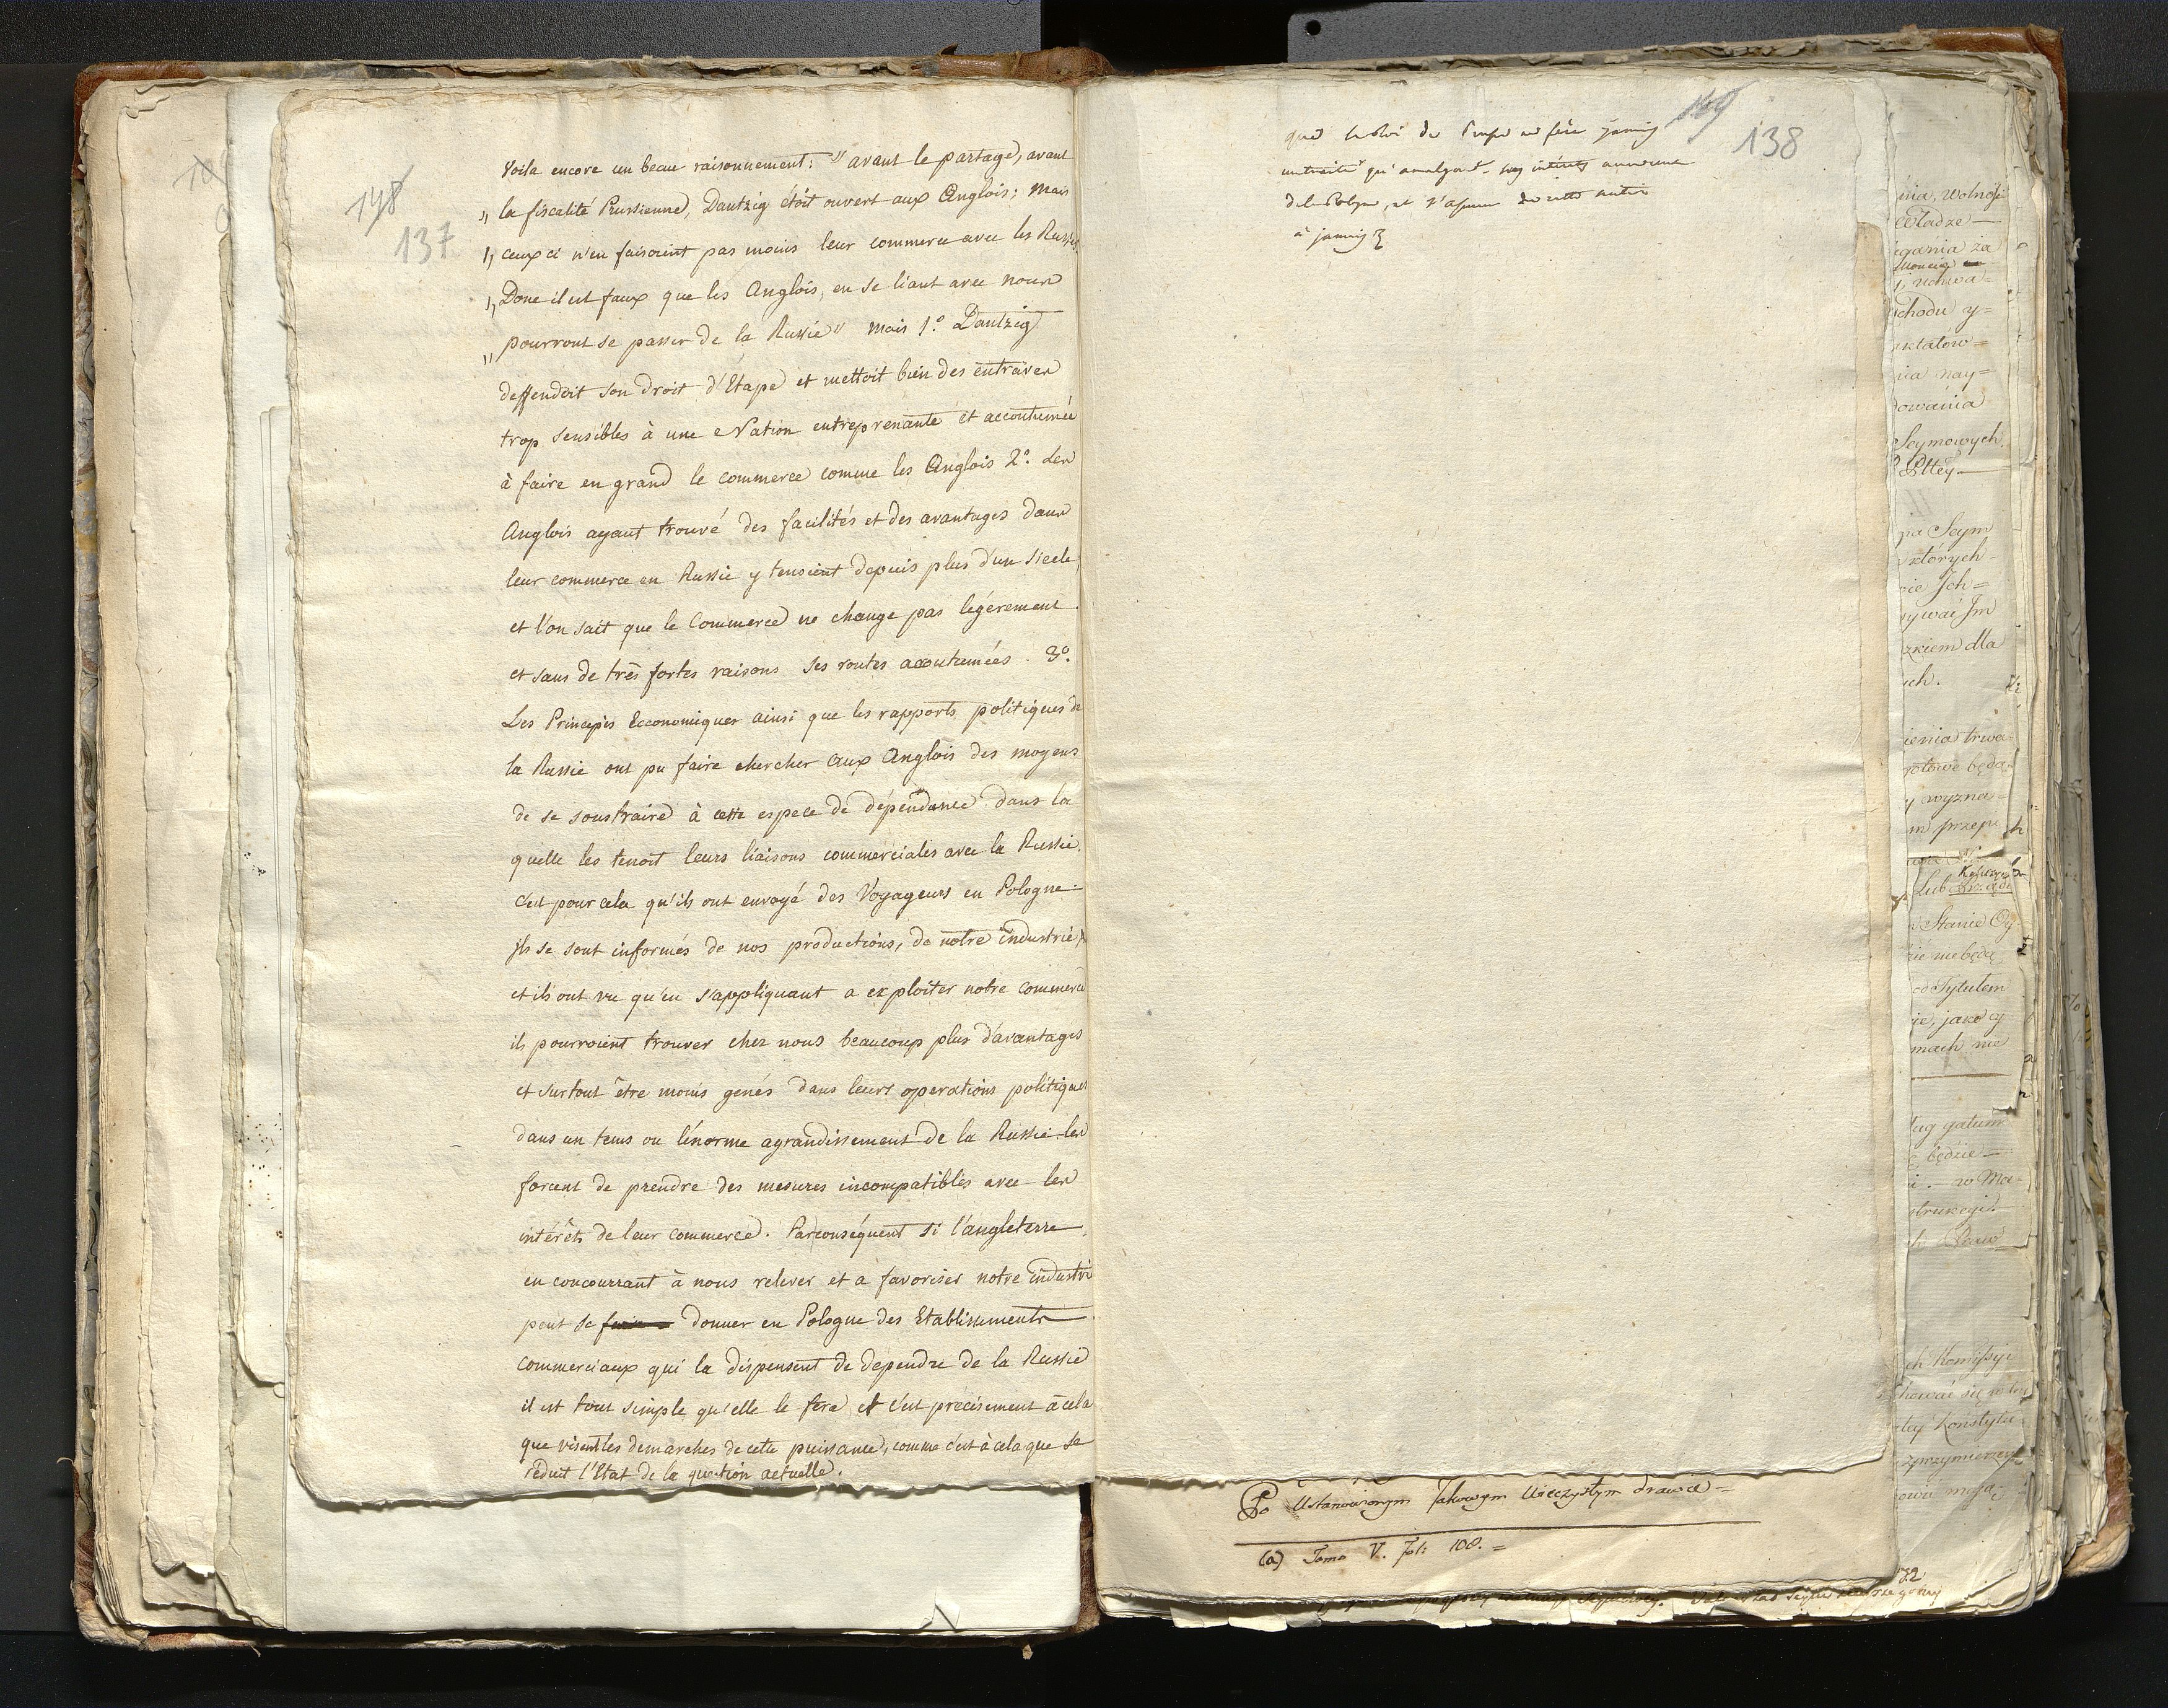 148
137
Voila encore un beau raisonnement: " avant le partage, avant
" la fiscalité Prussienne, Dantzig étoit ouvert aux Anglois; mais
" ceux ci n'en faisoient pas moins leur commerce avec les Russes.
" Donc il est faux que les Anglois, en se liant avec nous
" pourront se passer de la Russie" mais 1.º Dantzig
deffendoit son droit d'Etape et mettoit bien des entraves
trop sensibles à une Nation entreprenante et accoutumée
à faire en grand le commerce comme les Anglois 2.º Les
Anglois ayant trouvé des facilités et des avantages dans
leur commerce en Russie y tenoient depuis plus d'un siecle,
et l'on sait que le Commerce ne change pas légérement
et sans de très fortes raisons ses routes accoutumées. 3.º
Les Principes Economiques ainsi que les rapports politiques de
la Russie ont pu faire chercher aux Anglois des moyens
de se soustraire à cette espece de dépendance dans la
quelle les tenoit leurs liaisons commerciales avec la Russie.
C'est pour cela qu'ils ont envoyé des Voyageurs en Pologne.
ils se sont informés de nos productions, de notre industrie,
et ils ont vu qu'en s'appliquant a exploiter notre commerce
ils pourroient trouver chez nous beaucoup plus d'avantages
et surtout être moins genés dans leurs operations politiques
dans un tems ou l'énorme agrandissement de la Russie les
forcent de prendre des mesures incompatibles avec les
intérêts de leur commerce. Parconséquent si l'angleterre
en concourrant à nous relever et a favoriser notre industri
peut se donner en Pologne des Etablissements
commerciaux qui la dispensent de dependre de la Russie
il est tout simple qu'elle le fera, et c'est précisement à cela
que visent les demarches de cette puissance, comme c'est à cela que se
réduit l'Etat de la question actuelle.
149
138
que le Roi de Prusse ne fera jamais
un traité qui
de la Pologne, et s'assure de cette
à jamais
Po Ustanowionym Takowym Wieczystym
(a) Tomo V. fol: 108. =
72
Wolność
Władze
chodu y=
nay=
Seymowych
na Seym
których
Ich=
Im
dla
ch.
trwa
będą
y wyzna=
Lub
Stanie
nie będą
Tytułem
jako y
mach nie
będzie
w Ma-
ch Kommissyi